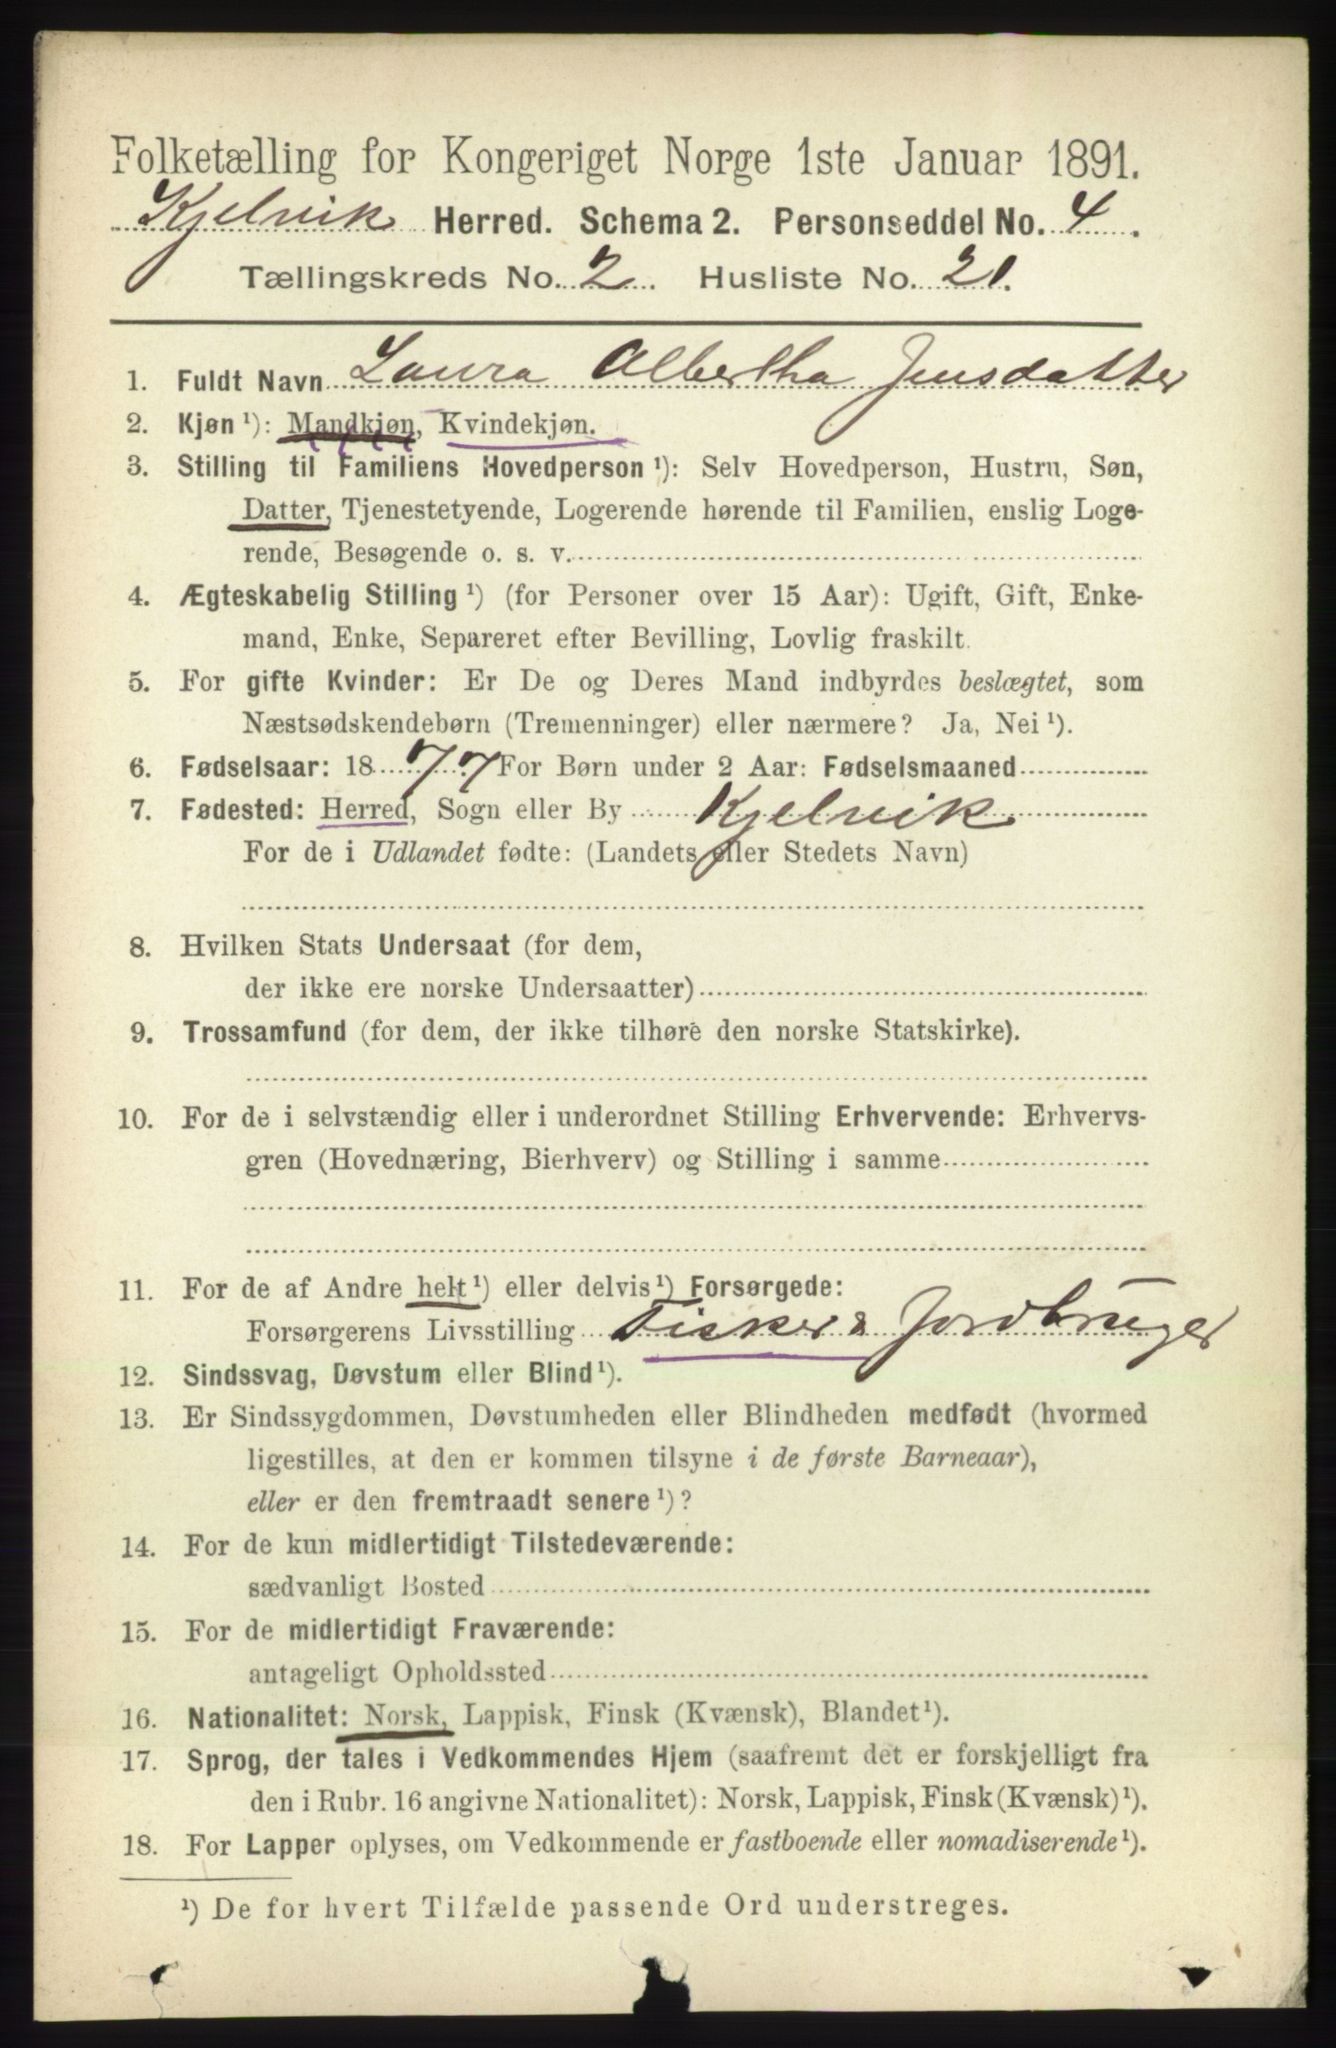 Folketælling for Kongeriget Norge 1ste Januar 1891.
Kjelvik Herred. Schema 2. Personseddel No. 4.
Tællingskreds No. 2 Husliste No. 21.
1. Fuldt Navn Laura Albertha Jensdatter
2. Kjøn ¹): Mandkjøn, Kvindekjøn.
3. Stilling til Familiens Hovedperson ¹): Selv Hovedperson, Hustru, Søn,
Datter, Tjenestetyende, Logerende hørende til Familien, enslig Loge-
rende, Besøgende o. s. v.
4. Ægteskabelig Stilling ¹) (for Personer over 15 Aar): Ugift, Gift, Enke-
mand, Enke, Separeret efter Bevilling, Lovlig fraskilt.
5. For gifte Kvinder: Er De og Deres Mand indbyrdes beslægtet, som
Næstsødskendebørn (Tremenninger) eller nærmere? Ja, Nei ¹).
6. Fødselsaar: 1877 For Børn under 2 Aar: Fødselsmaaned
7. Fødested: Herred, Sogn eller By Kjelvik
For de i Udlandet fødte: (Landets eller Stedets Navn)
8. Hvilken Stats Undersaat (for dem,
der ikke ere norske Undersaatter)
9. Trossamfund (for dem, der ikke tilhøre den norske Statskirke).
10. For de i selvstændig eller i underordnet Stilling Erhvervende: Erhvervs-
gren (Hovednæring, Bierhverv) og Stilling i samme
11. For de af Andre helt ¹) eller delvis ¹) Forsørgede:
Forsørgerens Livsstilling Fisker & Jordbruger
12. Sindssvag, Døvstum eller Blind ¹).
13. Er Sindssygdommen, Døvstumheden eller Blindheden medfødt (hvormed
ligestilles, at den er kommen tilsyne i de første Barneaar),
eller er den fremtraadt senere ¹)?
14. For de kun midlertidigt Tilstedeværende:
sædvanligt Bosted
15. For de midlertidigt Fraværende:
antageligt Opholdssted
16. Nationalitet: Norsk, Lappisk, Finsk (Kvænsk), Blandet ¹).
17. Sprog, der tales i Vedkommendes Hjem (saafremt det er forskjelligt fra
den i Rubr. 16 angivne Nationalitet): Norsk, Lappisk, Finsk (Kvænsk) ¹).
18. For Lapper oplyses, om Vedkommende er fastboende eller nomadiserende ¹).
¹) De for hvert Tilfælde passende Ord understreges.